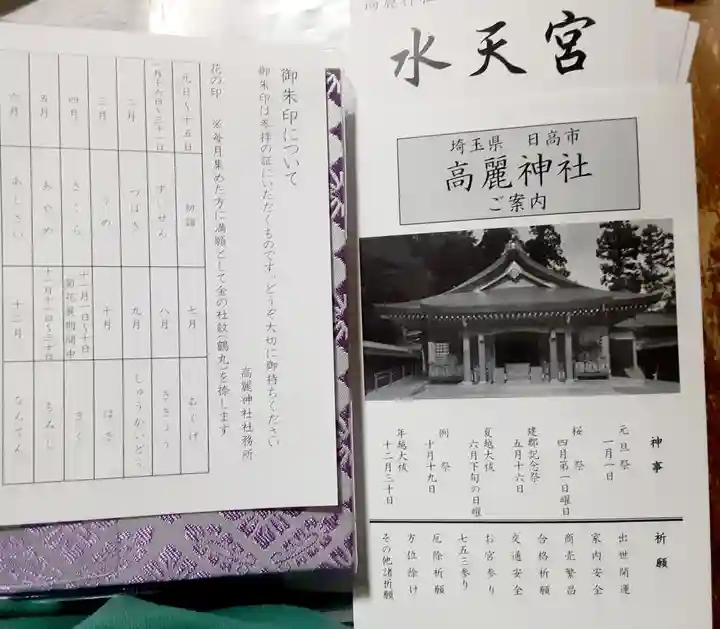 御朱印について
御朱印は参拝の証にいただくものです。どうぞ大切に御持ちください
高麗神社社務所
花の印　※毎月集めた方に満願として金の社紋(鶴丸)を捺します
元日〜十五日　初詣
一月十六日〜三十一日　すいせん
二月　つばき
三月　うめ
四月　さくら
五月　あやめ
六月　あじさい
七月　むくげ
八月　ききょう
九月　しゅうかいどう
十月　はぎ
十一月一日〜十日
菊花展期間中　きく
十一月十一日〜三十日　もみじ
十二月　なんてん
高麗神社
水天宮
埼玉県　日高市
高麗神社
ご案内
神事
元旦祭
一月一日
桜祭
四月第一日曜日
建郡記念祭
五月十六日
夏越大祓
六月下旬の日曜
例祭
十月十九日
年越大祓
十二月三十日
祈願
出世開運
家内安全
商売繁昌
合格祈願
交通安全
お宮参り
七五三参り
厄除祈願
方位除け
その他諸祈願